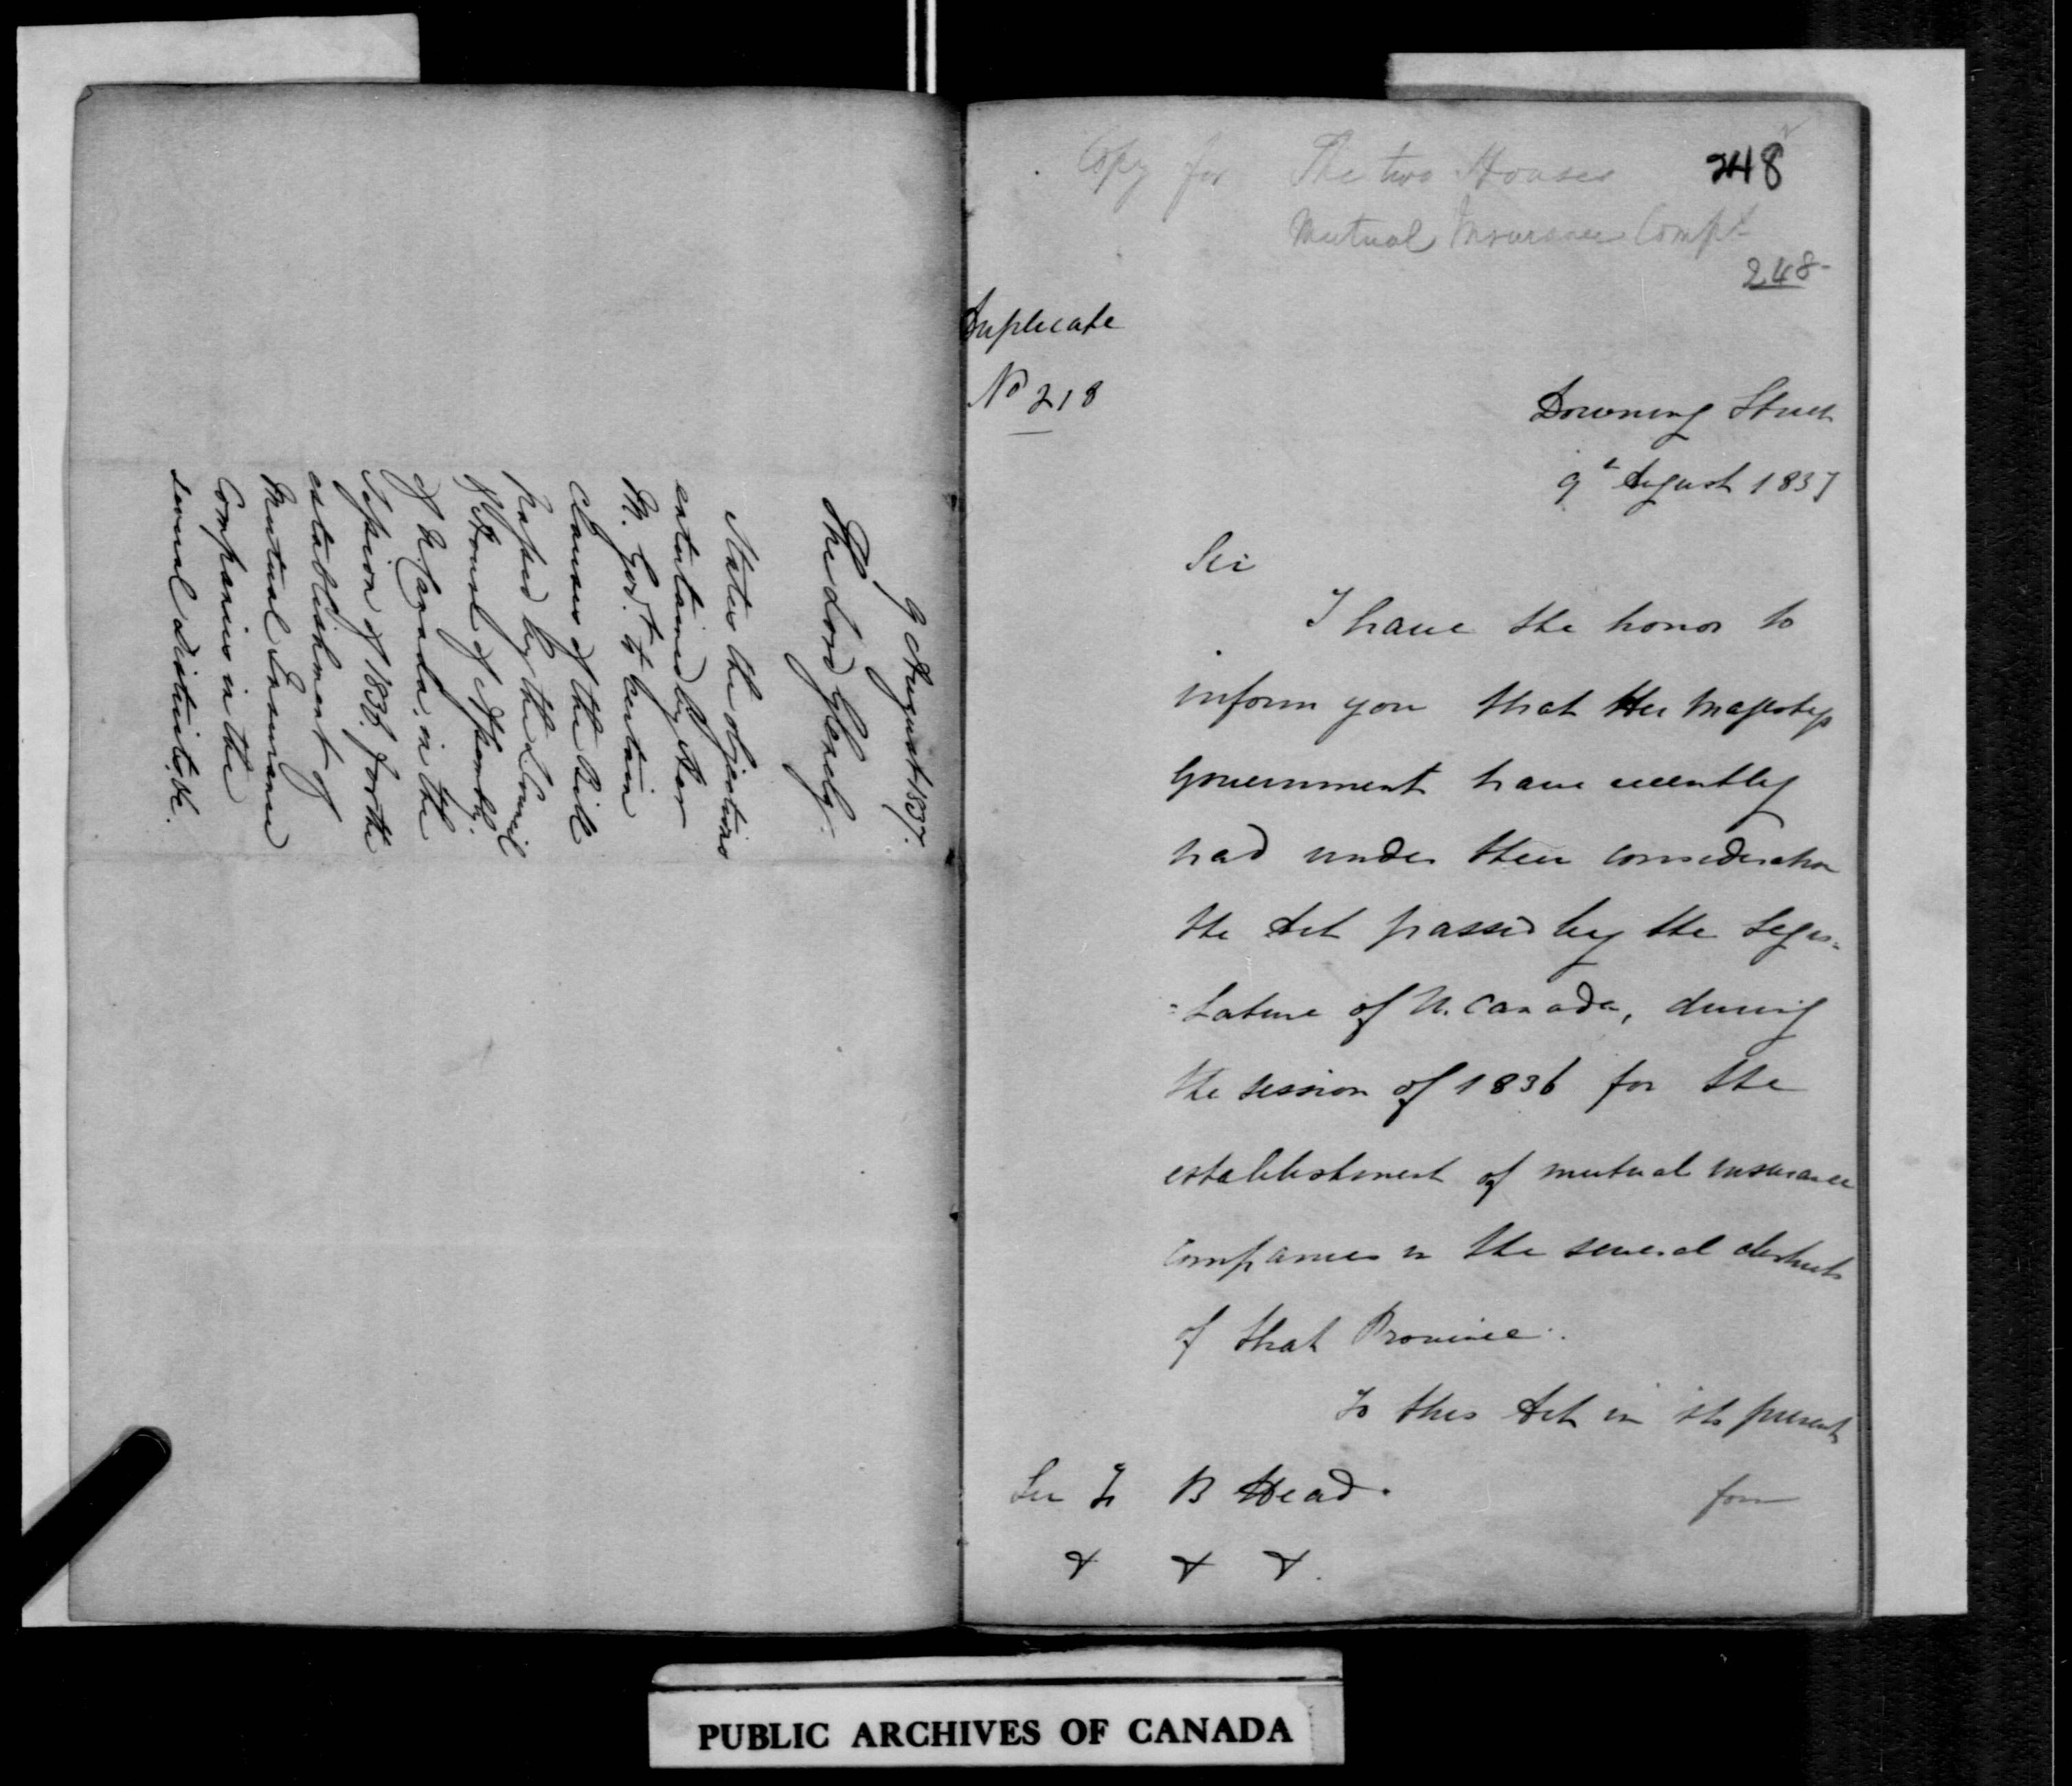 9 August 1837.
The Lord Glenelg.
States the objections
entertained by Her
M. Govt. to certain
Clauses of the Bill
passed by the L. Council
& House of Assembly
of U. Canada, in the
Session of 1836, for the
establishment of
Mutual Insurance
Companies in the
several districts, &c.
Copy for The two Houses
248
Mutual Insurance Compy
248-
Duplicate
No 218
Downing Street
9th August 1837
Sir
I have the honor to
inform you that Her Majesty's
Government have recently
had under their consideration
the Act passed by the Legis-
-lature of U. Canada, during
the session of 1836 for the
establishment of mutual insurance
companies in the several districts
of that Province.
To this Act in its present
form
Sir F. B Head.
& & &.
PUBLIC ARCHIVES OF CANADA